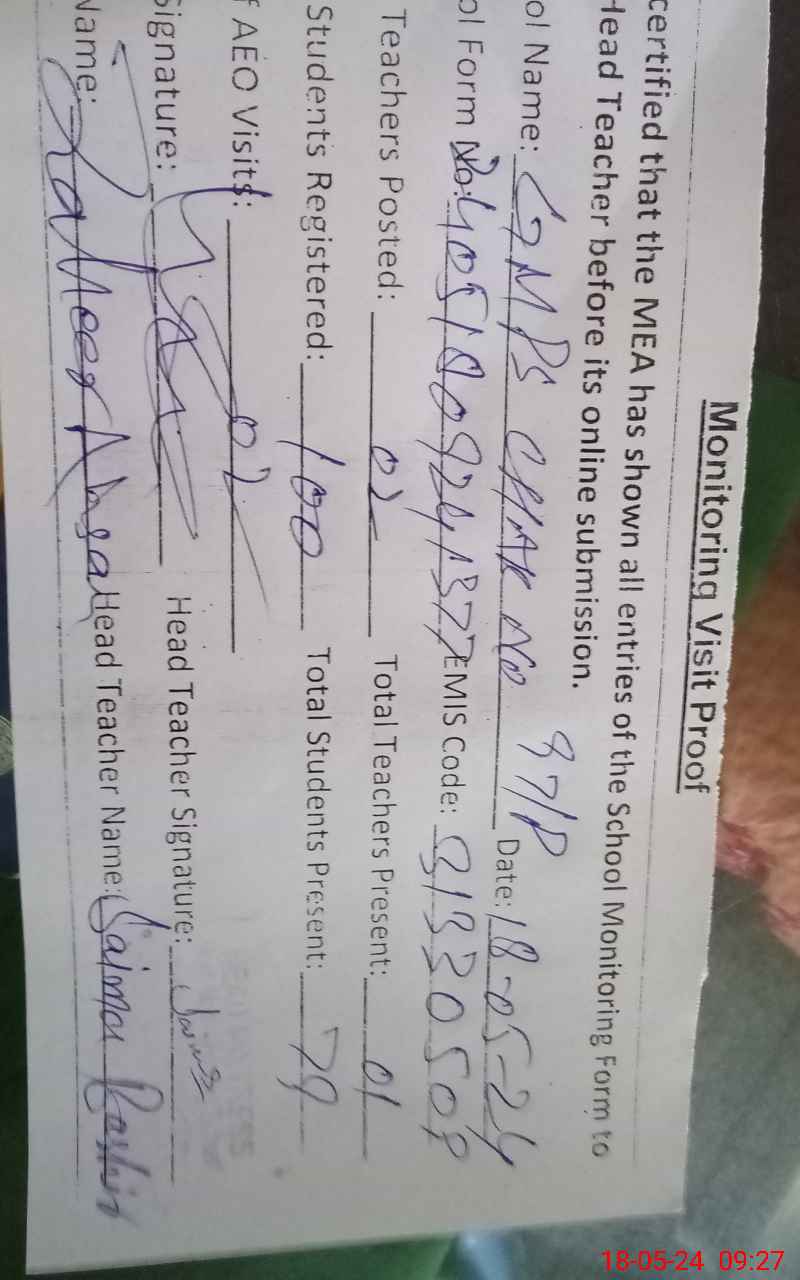 Monitoring Visit Proof
certified that the MEA has shown all entries of the School Monitoring Form to
Head Teacher before its online submission.
ol Name: GMPS CHAK No 97/P Date: 18-05-24
ol Form No: 24051809241377 EMIS Code: 31330508
Teachers Posted: 02 Total Teachers Present: 01
Students Registered: 100 Total Students Present: 79
f AEO Visits: 02
Signature: Head Teacher Signature: Saima
Name: Zaheer Head Teacher Name: Saima Bashir
18-05-24 09:27